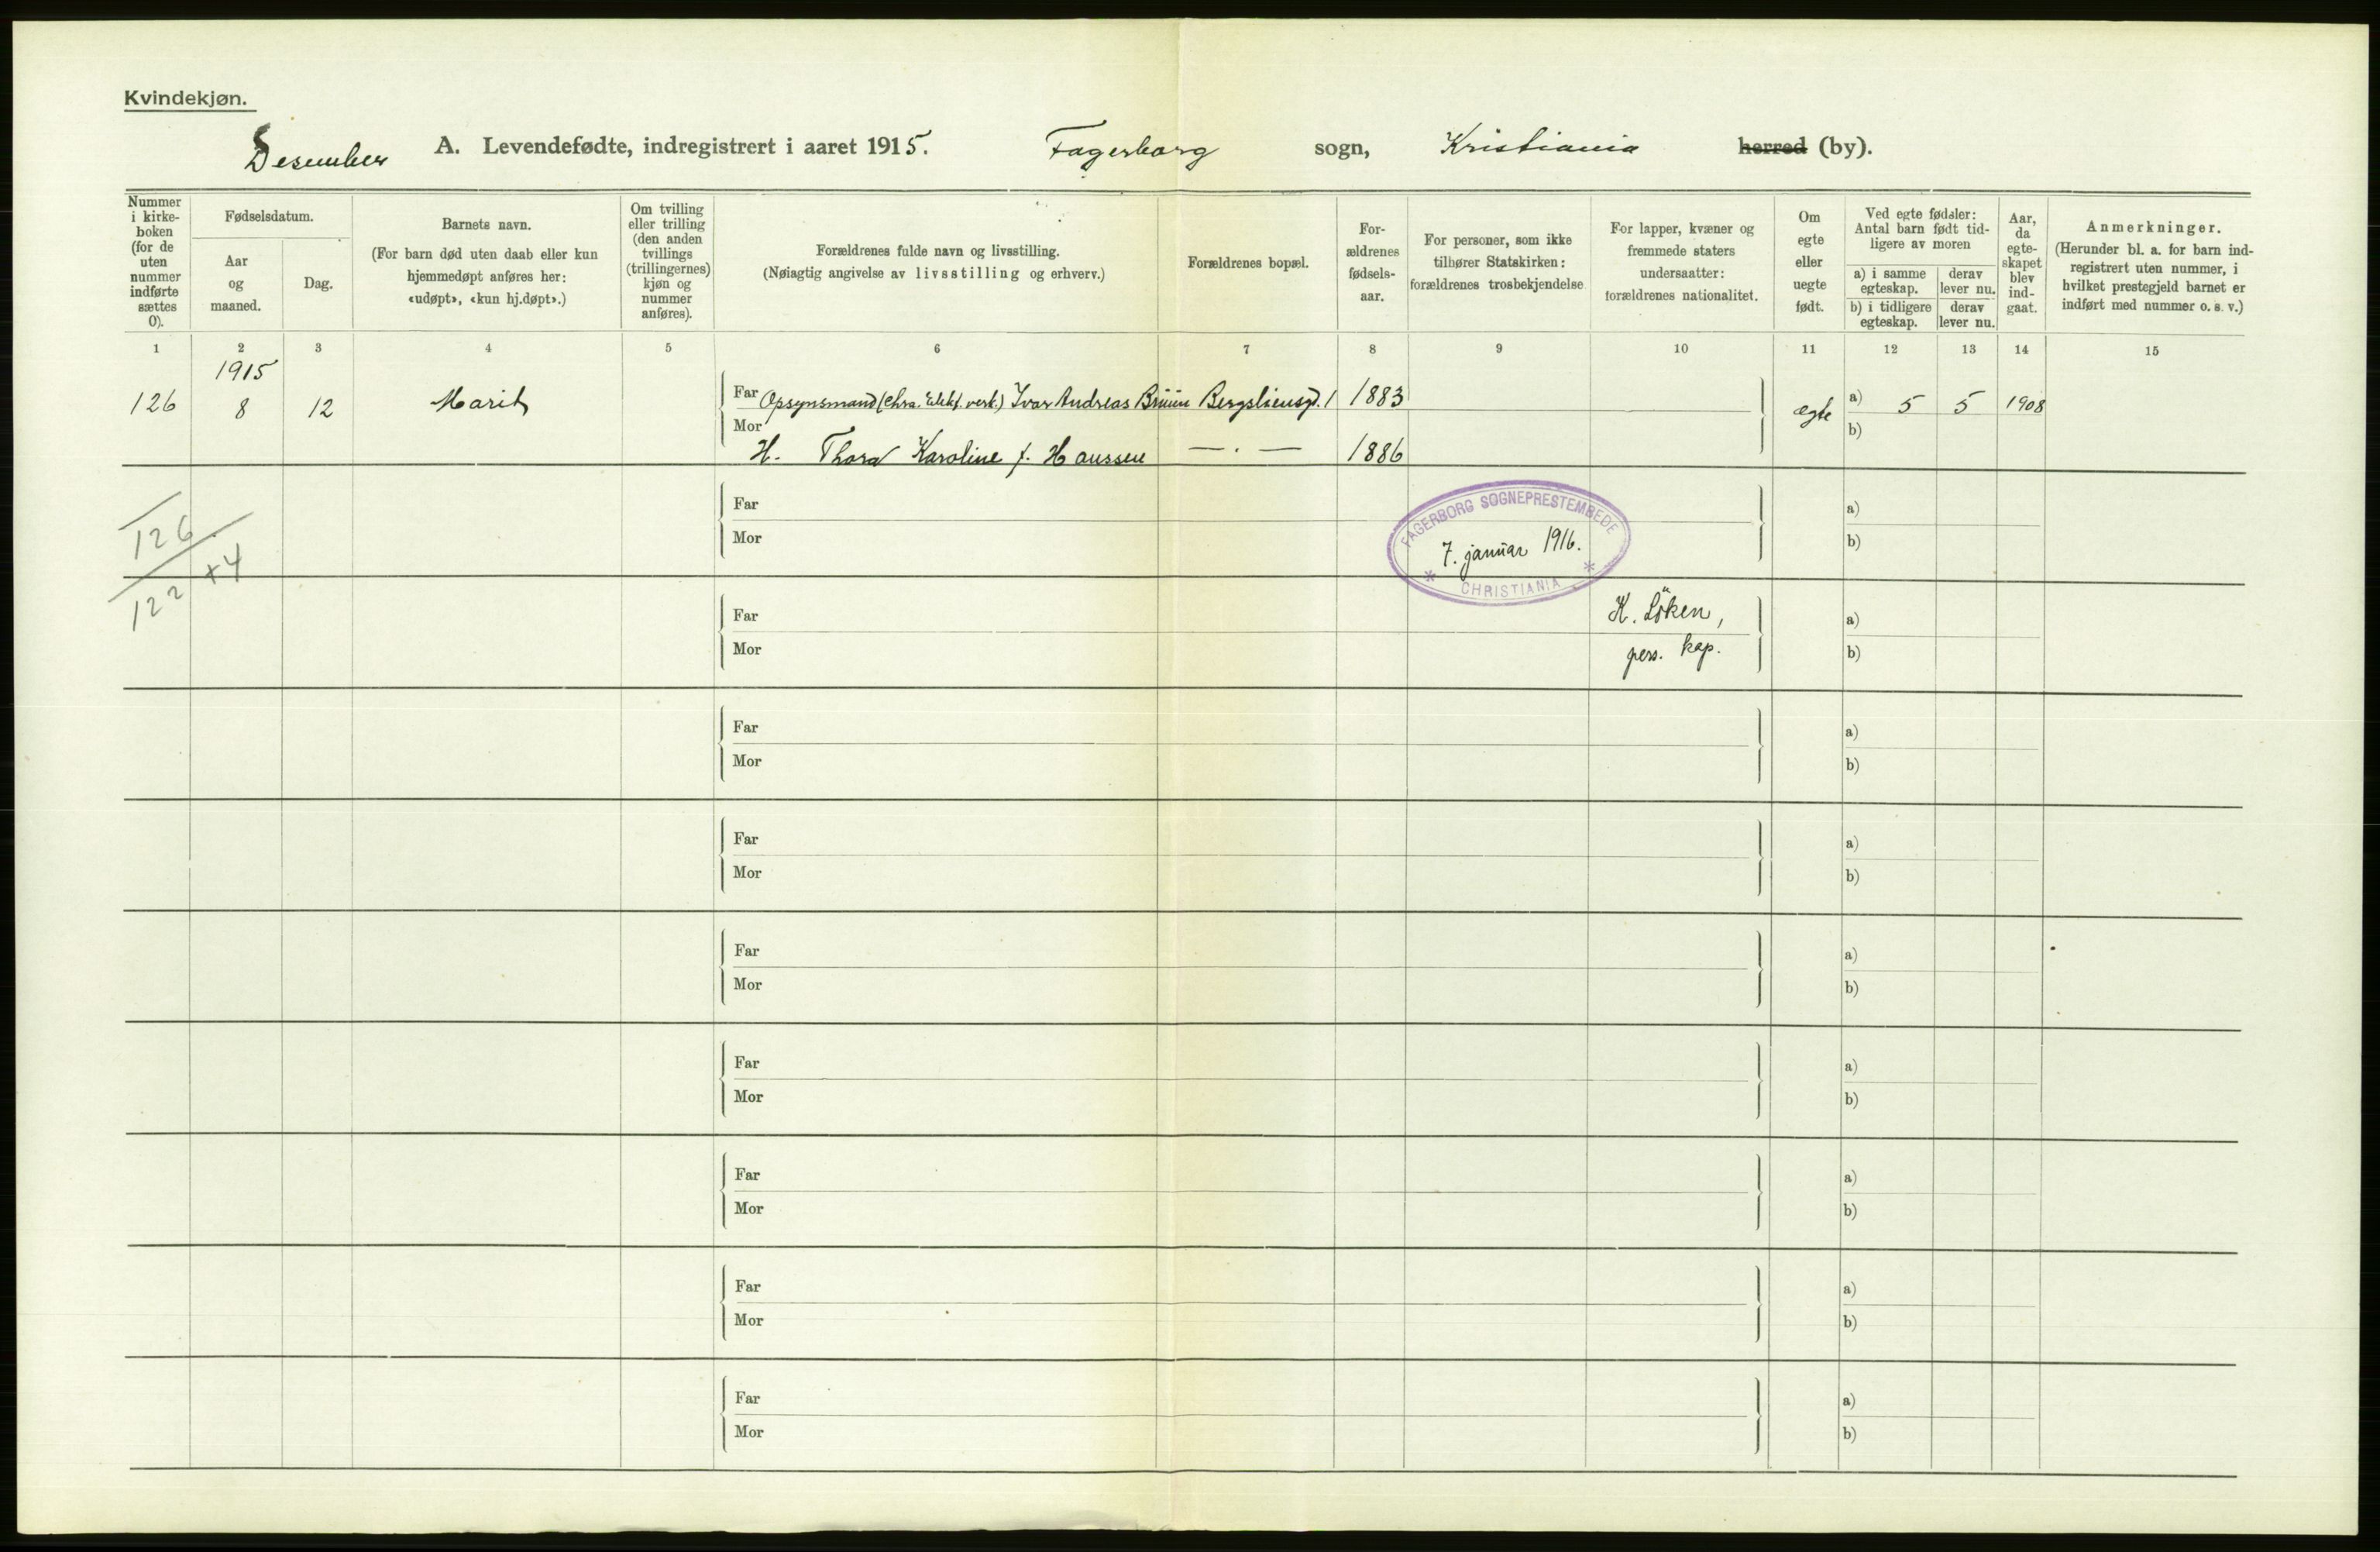 Kvindekjøn.
Desember A. Levendefødte, indregistrert i aaret 1915. Fagerborg sogn, Kristiania herred (by).
Nummer i kirke-boken (for de uten nummer indførte sættes 0).
Fødselsdatum.
Aar og maaned.
Dag.
Barnets navn.
(For barn død uten daab eller kun hjemmedøpt anføres her: «udøpt», «kun hj.døpt».)
Om tvilling eller trilling (den anden tvillings (trillingernes) kjøn og nummer anføres).
Forældrenes fulde navn og livsstilling.
(Nøiagtig angivelse av livsstilling og erhverv.)
Forældrenes bopæl.
For-ældrenes fødsels-aar.
For personer, som ikke tilhører Statskirken: forældrenes trosbekjendelse
For lapper, kvæner og fremmede staters undersaatter: forældrenes nationalitet.
Om egte eller uegte født.
Ved egte fødsler: Antal barn født tid-ligere av moren
a) i samme egteskap.
derav lever nu.
b) i tidligere egteskap.
derav lever nu.
Aar, da egte-skapet blev ind-gaat.
Anmerkninger.
(Herunder bl. a. for barn ind-registrert uten nummer, i hvilket prestegjeld barnet er indført med nummer o. s. v.)
1 2 3 4 5 6 7 8 9 10 11 12 13 14 15
1915
126 8 12 Marit Far Opsynsmand (Chra. Elekt. verk.) Ivar Andreas Bruun Bergsliensgt. 1 1883 egte a) 5 5 1908
Mor H. Thora Karoline f. Hanssen — . — 1886 b)
Far a)
Mor b)
FAGERBORG SOGNEPRESTEMBEDE
7. januar 1916.
* CHRISTIANIA *
126
122 + 4
Far a)
Mor b)
K. Löken,
pers. kap.
Far a)
Mor b)
Far a)
Mor b)
Far a)
Mor b)
Far a)
Mor b)
Far a)
Mor b)
Far a)
Mor b)
Far a)
Mor b)